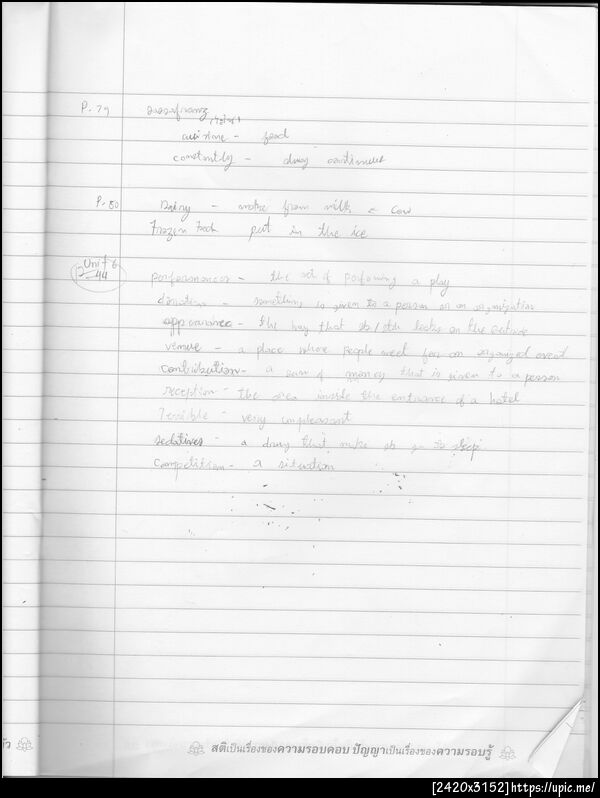 P. 79
cuisine - food
constantly - doing continues
P. 80 Dairy - make from milk ← cow
Frozen food put in the ice
Unit 6
P 44
performances - the act of performing a play
donation - something is given to a person or an organization
appearance - the way that sb/sth looks on the outside
venue - a place where people meet for an organized event
contribution - a sum of money that is given to a person
reception - the area inside the entrance of a hotel
Terrible - very unpleasant
sedatives - a drug that make sb go to sleep
competition - a situation
สติเป็นเรื่องของความรอบคอบ ปัญญาเป็นเรื่องของความรอบรู้
[2420x3152]https://upic.me/